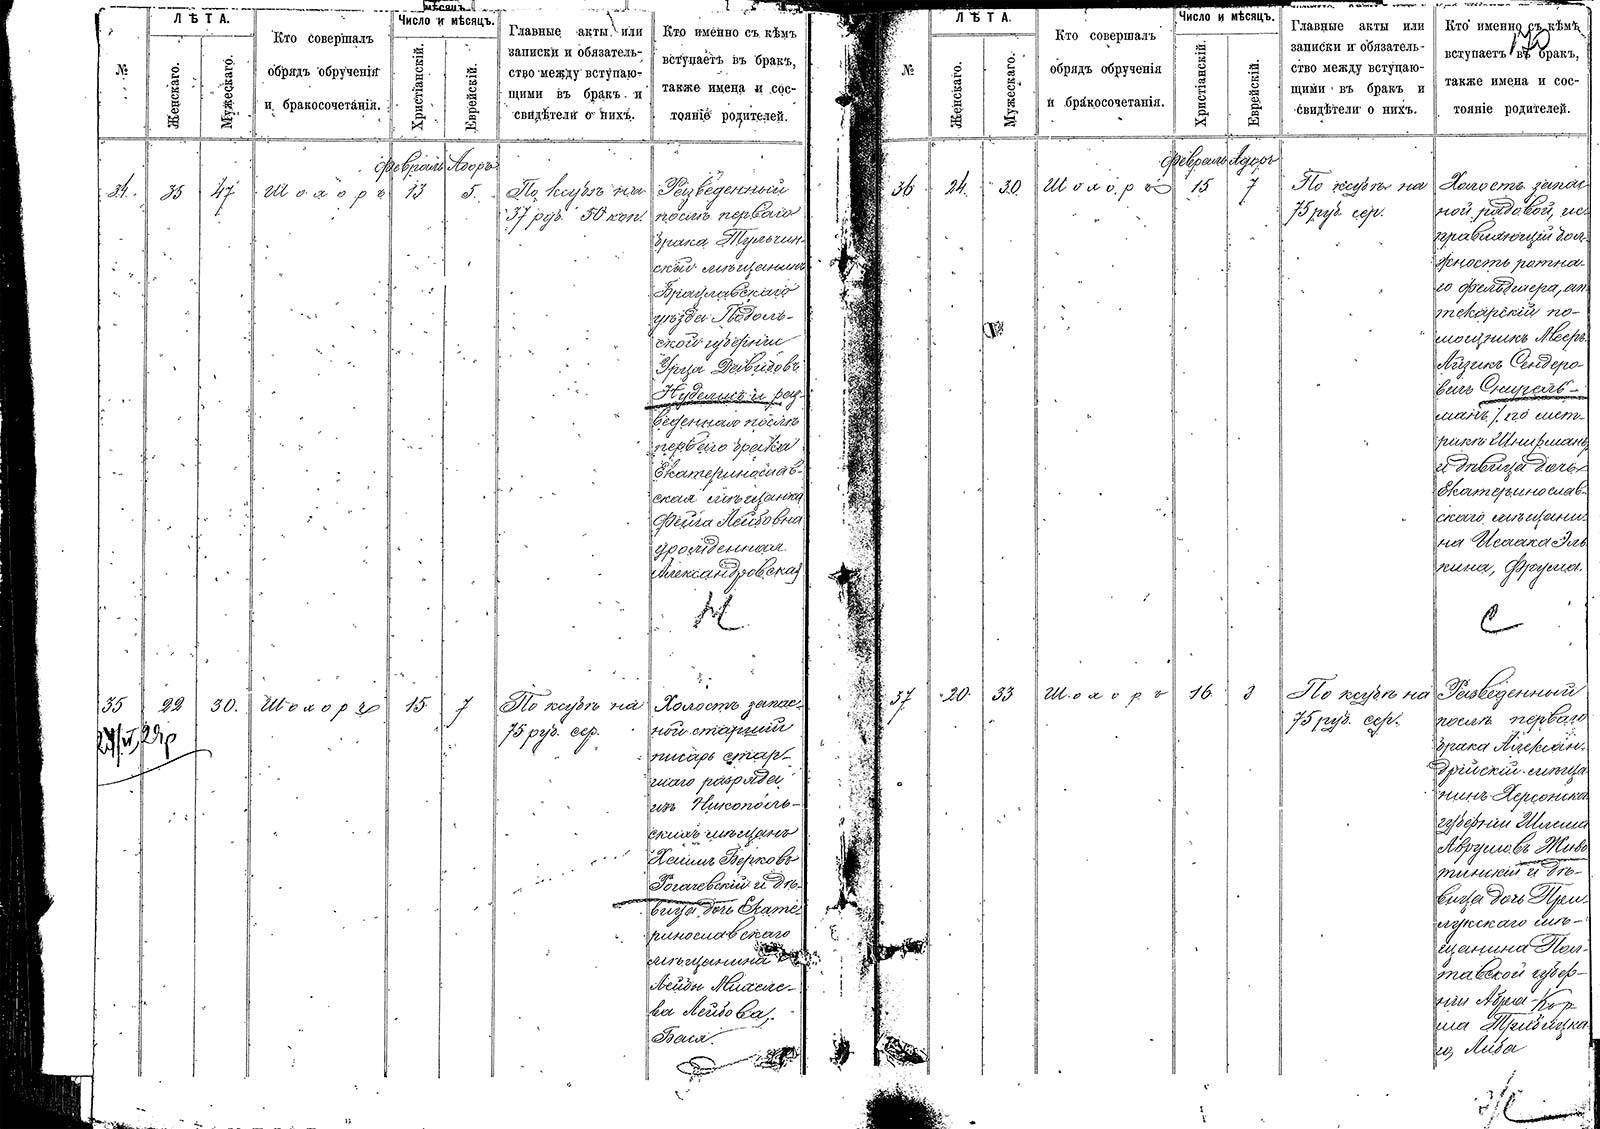 ЛѢТА.
Число и мѣсяцъ.
№
Женскаго.
Мужескаго.
Кто совершалъ
обрядъ обрученія
и бракосочетанія.
Христіанскій.
Еврейскій.
Главные акты или
записки и обязатель-
ство между вступаю-
щими въ бракъ и
свидѣтели о нихъ.
Кто именно съ кѣмъ
вступаетъ въ бракъ,
также имена и сос-
тояніе родителей.
Февраль Адоръ
34. 35 47 Шохоръ 13 5.
По ксубѣ на
37 руб. 50 коп.
Разведенный
послѣ перваго
брака Тульчин-
скій мѣщанинъ
Брацлавскаго
уѣзда Подоль-
ской губерніи
Урца Давидовъ
Нудель и раз-
веденная послѣ
перваго брака
Екатеринослав-
ская мѣщанка
Фейга Лейбовна
урожденная
Александровская
35 22 30. Шохоръ 15 7
По ксубѣ на
75 руб. сер.
Холостъ запас-
ной старшій
писарь стар-
шаго разряда
изъ Никополь-
скихъ мѣщанъ
Хаимъ Берковъ
Рогачевскій и дѣ-
вица дочь Екате-
ринославскаго
мѣщанина
Лейбы Михеле-
ва Лейбова,
Бася.
ЛѢТА.
Число и мѣсяцъ.
№
Женскаго.
Мужескаго.
Кто совершалъ
обрядъ обрученія
и бракосочетанія.
Христіанскій.
Еврейскій.
Главные акты или
записки и обязатель-
ство между вступаю-
щими въ бракъ и
свидѣтели о нихъ.
Кто именно съ кѣмъ
вступаетъ въ бракъ,
также имена и сос-
тояніе родителей.
170
Февраль Адоръ
36 24. 30. Шохоръ 15 7
По ксубѣ на
75 руб. сер.
Холостъ запас-
ной рядовой, ис-
правляющій дол-
жность ротна-
го фельдшера, ап-
текарскій по-
мощникъ Мееръ
Айзикъ Сендеро-
вичъ
манъ / по мет-
рикѣ Шифманъ/
и дѣвица дочь
Екатеринослав-
скаго мѣщани-
на Исаака Эль-
кина, Фрума.
С
37 20. 33 Шохоръ 16
По ксубѣ на
75 руб. сер.
Разведенный
послѣ перваго
брака Алексан-
дрійскій мѣща-
нинъ Херсонской
губерніи Шлема
Аврумовъ Живо-
тинскій и дѣ-
вица дочь При-
лукскаго мѣ-
щанина Пол-
тавской губер-
ніи
го, Либа